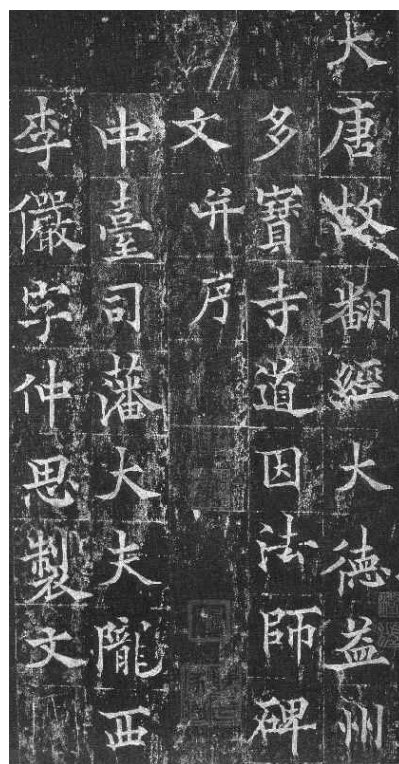 大唐故翻經大德益州
多寶寺道因法師碑
文并序
中臺司藩大夫隴西
李儼字仲思製文